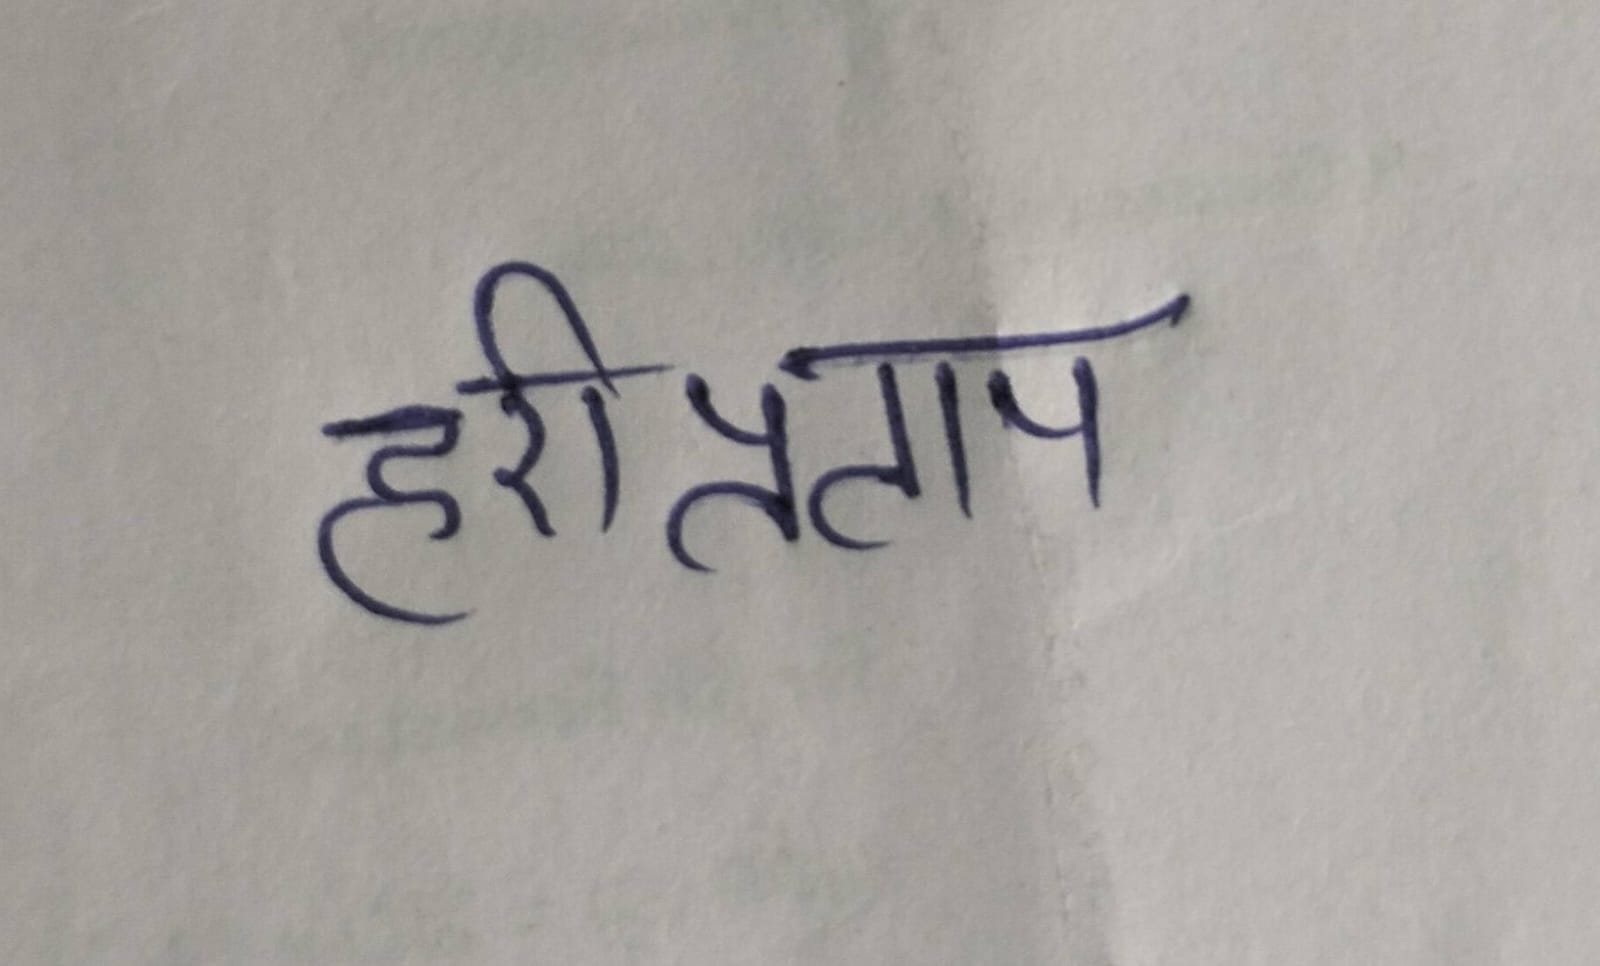 हरी प्रताप